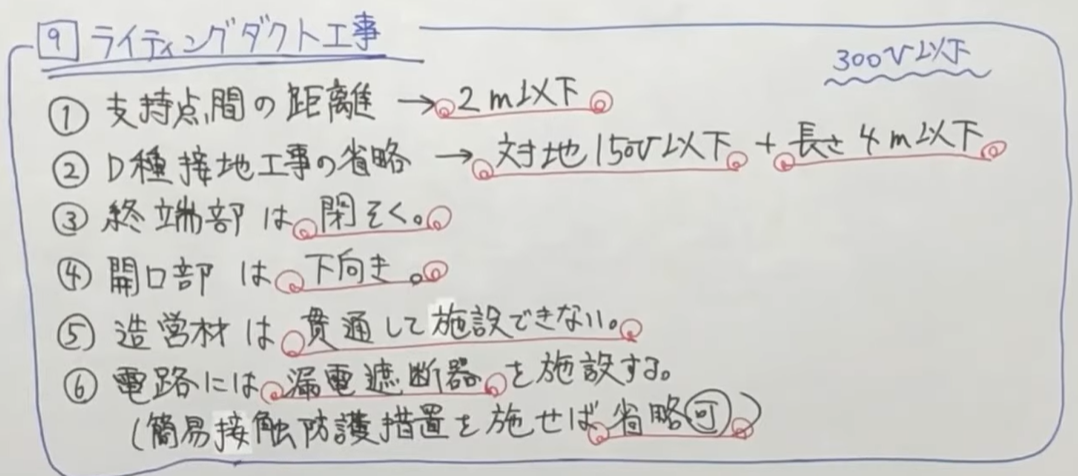 9 ライティングダクト工事
300V以下
① 支持点間の距離 → 2m以下
② D種接地工事の省略 → 対地150V以下 + 長さ4m以下
③ 終端部は閉そく。
④ 開口部は下向き。
⑤ 造営材は貫通して施設できない。
⑥ 電路には漏電遮断器を施設する。
(簡易接触防護措置を施せば省略可)